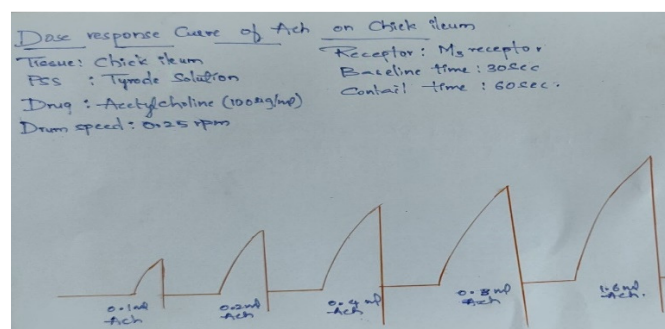 Dose response Curve of Ach on Chick ileum
Tissue: Chick ileum
PSS : Tyrode Solution
Drug : Acetylcholine (100ug/ml)
Drum speed: 0.25 rpm
Receptor: M3 receptor
Baseline time: 30Sec
Contail time : 60sec.
0.1ml
Ach
0.2ml
Ach
0.4 ml
Ach
0.8 ml
Ach
1.6ml
Ach.